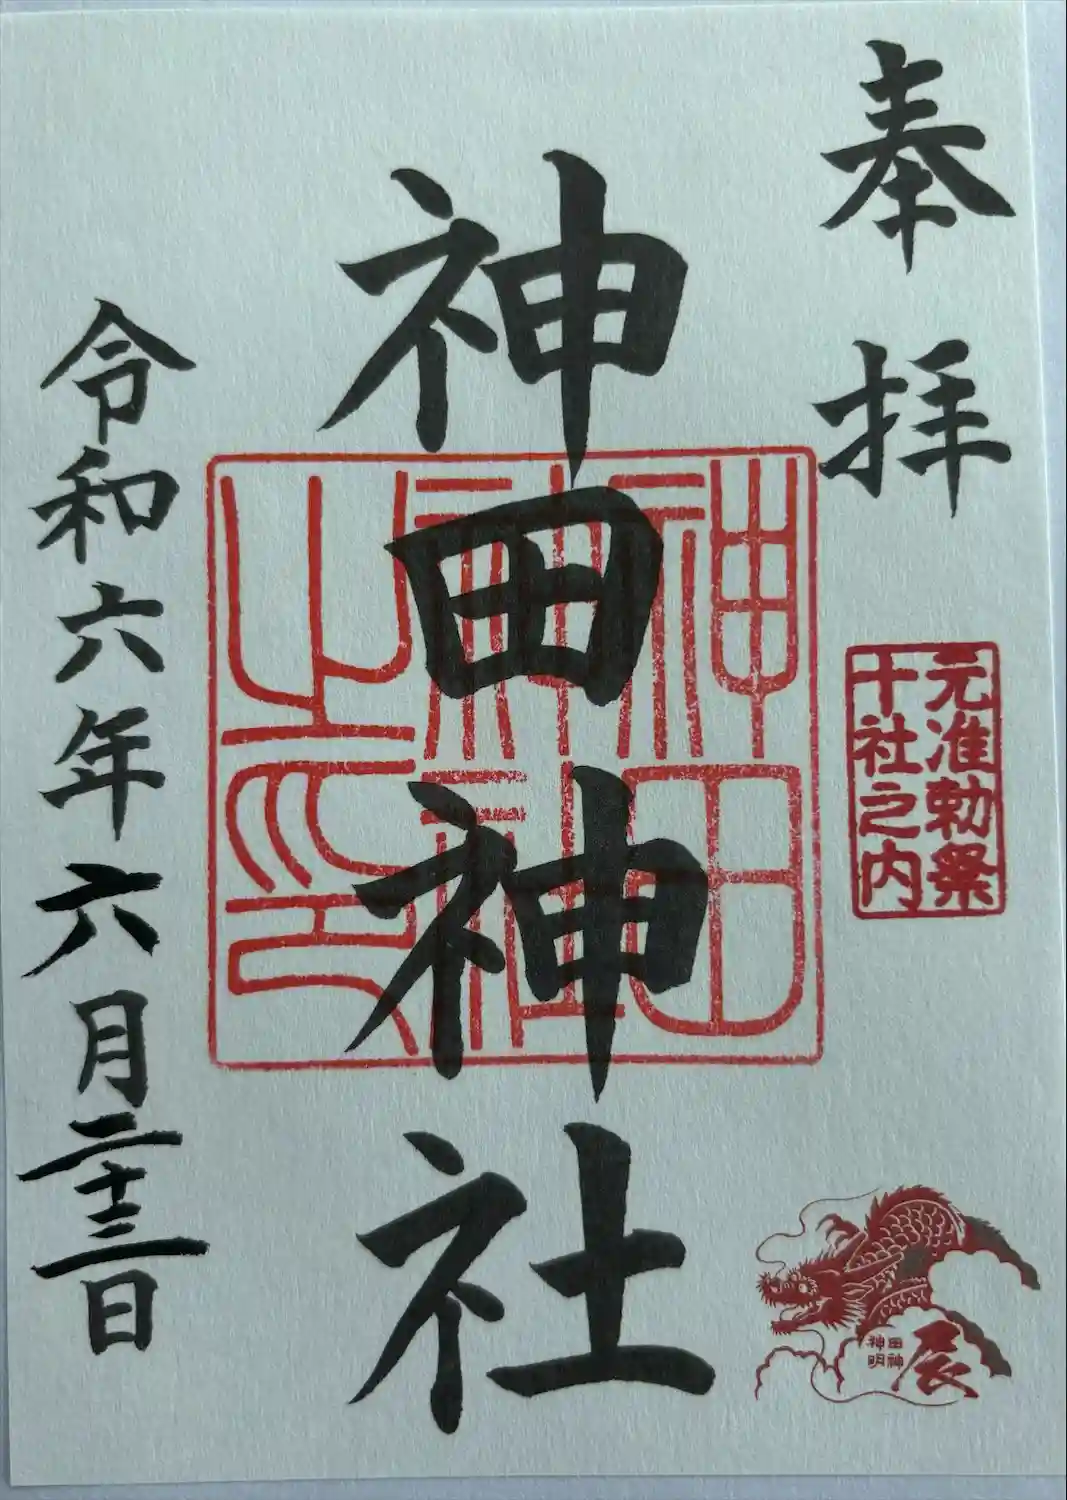 奉拝
元准勅祭
十社之内
神田神社
神田
神社
之印
令和六年六月二十三日
田神
神明
辰